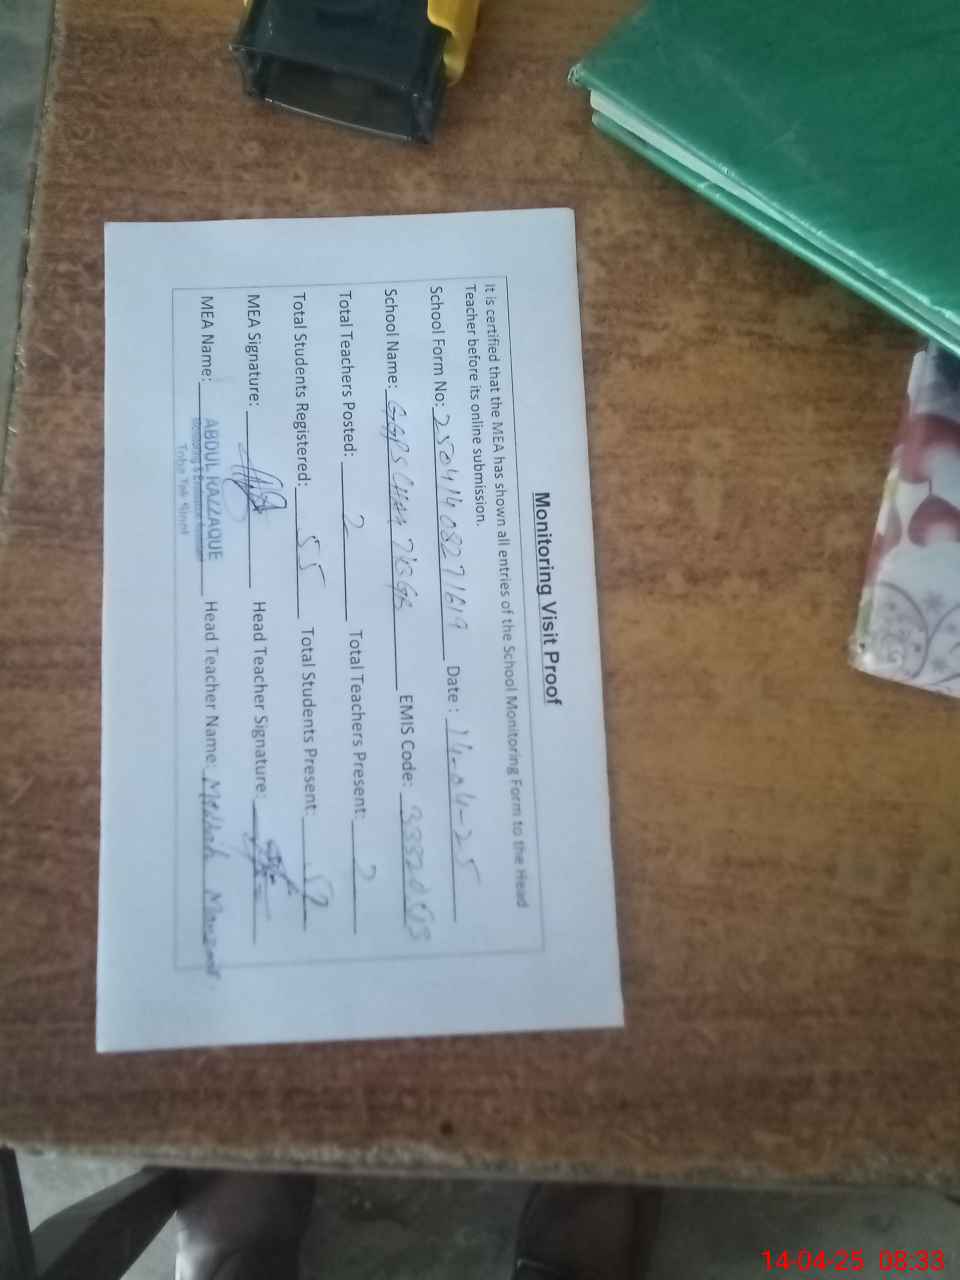 Monitoring Visit Proof
It is certified that the MEA has shown all entries of the School Monitoring Form to the Head
Teacher before its online submission.
School Form No: 25041408271619 Date : 14-04-25
School Name: GGPS CHAK EMIS Code:
Total Teachers Posted: 2 Total Teachers Present: 2
Total Students Registered: 55 Total Students Present: 52
MEA Signature: Head Teacher Signature:
MEA Name: ABDUL RAZZAQUE Head Teacher Name:
Monitoring & Evaluation Assistant
Toba Tek Singh
14-04-25 08:33